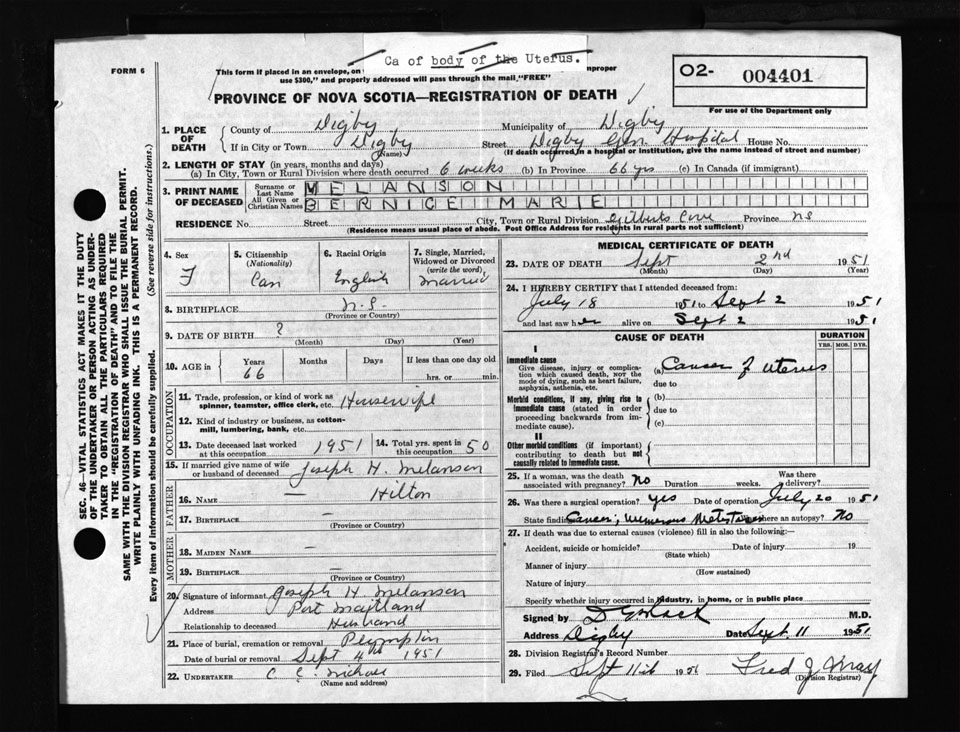 Ca of body of the Uterus.
FORM 6
This form if placed in an envelope, on improper
use $300," and properly addressed will pass through the mail, "FREE"
O2- 004401
For use of the Department only
PROVINCE OF NOVA SCOTIA—REGISTRATION OF DEATH
1. PLACE OF DEATH
County of Digby Municipality of Digby
If in City or Town Digby (Name) Street Digby Gen. Hospital House No.
(If death occurred in a hospital or institution, give the name instead of street and number)
2. LENGTH OF STAY (in years, months and days)
(a) In City, Town or Rural Division where death occurred 6 weeks (b) In Province 66 yrs (c) In Canada (if immigrant)
3. PRINT NAME OF DECEASED
Surname or Last Name MELANSON
All Given or Christian Names BERNICE MARIE
RESIDENCE No. Street City, Town or Rural Division Gilberts Cove Province NS
(Residence means usual place of abode. Post Office Address for residents in rural parts not sufficient)
4. Sex F
5. Citizenship (Nationality) Can
6. Racial Origin English
7. Single, Married, Widowed or Divorced (write the word) Married
8. BIRTHPLACE N.S.
(Province or Country)
9. DATE OF BIRTH ?
(Month) (Day) (Year)
10. AGE in Years 66 Months Days If less than one day old hrs. or min.
OCCUPATION
11. Trade, profession, or kind of work as spinner, teamster, office clerk, etc. Housewife
12. Kind of industry or business, as cotton-mill, lumbering, bank, etc.
13. Date deceased last worked at this occupation 1951 14. Total yrs. spent in this occupation 50
15. If married give name of wife or husband of deceased Joseph H. Melanson
FATHER
16. NAME — Hilton
17. BIRTHPLACE —
(Province or Country)
MOTHER
18. MAIDEN NAME —
19. BIRTHPLACE —
(Province or Country)
20. Signature of informant Joseph H. Melanson
Address Port Maitland
Relationship to deceased Husband
21. Place of burial, cremation or removal Plympton
Date of burial or removal Sept 4th 1951
22. UNDERTAKER C E
(Name and address)
MEDICAL CERTIFICATE OF DEATH
23. DATE OF DEATH Sept 2nd 1951
(Month) (Day) (Year)
24. I HEREBY CERTIFY that I attended deceased from:
July 18 1951 to Sept 2 1951
and last saw her alive on Sept 2 1951
CAUSE OF DEATH DURATION
YRS. MOS. DYS.
I
Immediate cause
Give disease, injury or complication which caused death, not the mode of dying, such as heart failure, asphyxia, asthenia, etc.
(a) Cancer of uterus
due to
Morbid conditions, if any, giving rise to immediate cause (stated in order proceeding backwards from immediate cause).
(b)
due to
(c)
II
Other morbid conditions (if important) contributing to death but not causally related to immediate cause.
25. If a woman, was the death associated with pregnancy? No Duration weeks. Was there delivery?
26. Was there a surgical operation? yes Date of operation July 20 1951
State findings Cancer; numerous Was there an autopsy? No
27. If death was due to external causes (violence) fill in also the following:—
Accident, suicide or homicide? Date of injury 19
(State which)
Manner of injury
(How sustained)
Nature of injury
Specify whether injury occurred in industry, in home, or in public place
Signed by M.D.
Address Digby Date Sept 11 1951
28. Division Registrar's Record Number
29. Filed Sept 11th 1951 Fred J
(Division Registrar)
SEC. 46—VITAL STATISTICS ACT MAKES IT THE DUTY
OF THE UNDERTAKER OR PERSON ACTING AS UNDER-
TAKER TO OBTAIN ALL THE PARTICULARS REQUIRED
IN THE "REGISTRATION OF DEATH" AND TO FILE THE
SAME WITH THE DIVISION REGISTRAR WHO SHALL ISSUE THE BURIAL PERMIT.
WRITE PLAINLY WITH UNFADING INK. THIS IS A PERMANENT RECORD.
Every item of information should be carefully supplied. (See reverse side for instructions.)